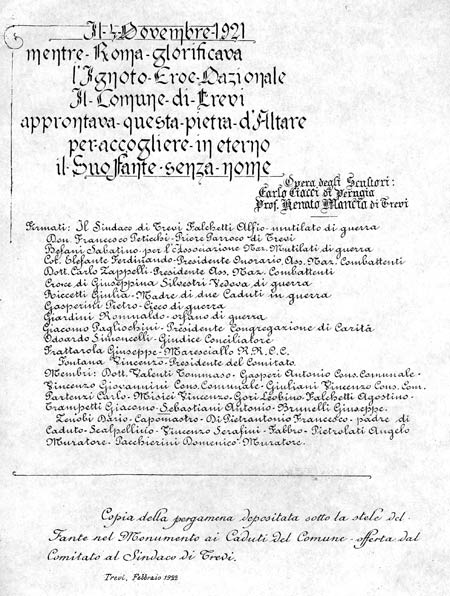 Il 4 Novembre 1921
mentre · Roma · glorificava
l'Ignoto · Eroe · Nazionale
Il · Comune · di · Trevi
approntava · questa · pietra · d'Altare
per · accogliere · in · eterno
il · Suo Fante · senza · nome
Opera degli Scultori:
Carlo Ciacci di Perugia
Prof. Renato Mancia di Trevi
Firmati: Il Sindaco di Trevi Falchetti Alfio - mutilato di guerra
Don. Francesco Petichi - Priore Parroco di Trevi
Befani Sabatino per l'Associazione Naz. Mutilati di guerra
Col. Elefante Ferdinando - Presidente Onorario Ass. Naz. Combattenti
Dott. Carlo Zappelli - Presidente Ass. Naz. Combattenti
Croce di Giuseppina Silvestri Vedova di guerra
Riccetti Giulia - Madre di due Caduti in guerra
Gasperini Pietro - Cieco di guerra
Giardini Romualdo - orfano di guerra
Giacomo Pagliochini - Presidente Congregazione di Carità
Odoardo Simoncelli - Giudice Conciliatore
Frattarola Giuseppe - Maresciallo R.R.C.C.
Fontana Vincenzo - Presidente del Comitato.
Membri: Dott. Valenti Tommaso - Gasperi Antonio Cons. Comunale -
Vincenzo Giovannini Cons. Comunale - Giuliani Vincenzo Cons. Com.
Partenzi Carlo - Misici Vincenzo - Gori Leobino - Falchetti Agostino -
Trampetti Giacomo - Sebastiani Antonio - Brunelli Giuseppe.
Zenobi Dario - Capomastro - Di Pietrantonio Francesco - padre di
Caduto - Scalpellino - Vincenzo Serafini - Fabbro - Pietrolati Angelo
Muratore - Pacchierini Domenico Muratore.
Copia della pergamena depositata sotto la stele del
Fante nel Monumento ai Caduti del Comune - offerta dal
Comitato al Sindaco di Trevi.
Trevi, Febbraio 1922